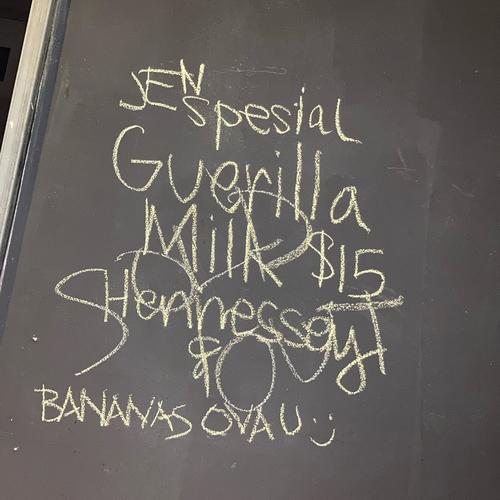 JEN spesial
Guerilla
Milk $15
Hennessey
BANANAS OVA U :)